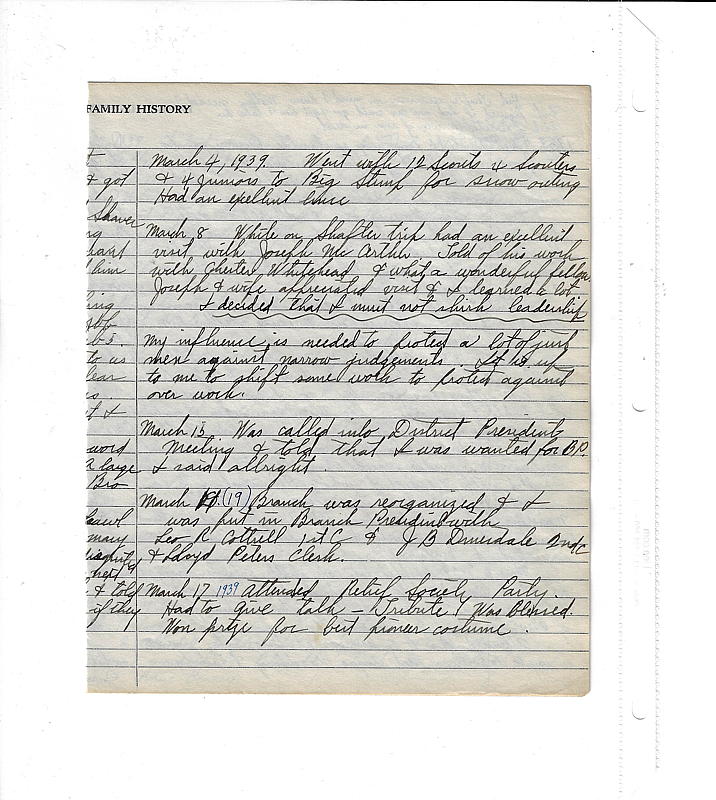 FAMILY HISTORY
March 4, 1939. Went with 12 Scouts 4 Scouters
& 4 Juniors to Big Stump for snow outing
Had an excellent time
March 8 While on Shafter trip had an excellent
visit with Joseph Mc Told of his work
with Chester Whitehead & what a wonderful fellow.
Joseph & wife appreciated visit & I learned a lot
I decided that I must not shirk leadership
My influence is needed to protect a lot of just
men against narrow judgements It is up
to me to shift some work to protect against
over work.
March 15 Was called into District Presidents
Meeting & told that I was wanted for B.P.
I said allright.
March (19) Branch was reorganized & I
was put in Branch President with
Leo R Cottrell 1st C & J B 2nd C
& Lloyd Peters Clerk.
March 17 1939 Attended Relief Society Party.
Had to give talk – Tribute & Was blessed.
Won prize for best pioneer costume.
& got
Shaver
him
to us
word
a large
Bro
& told
if they